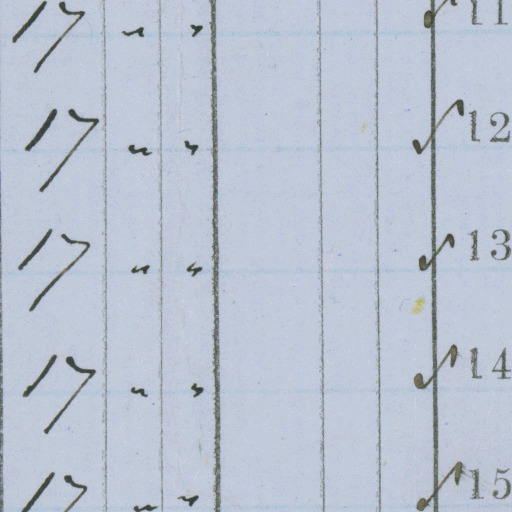 17 " " ✓ 11
17 " " ✓ 12
17 " " ✓ 13
17 " " ✓ 14
17 " " ✓ 15